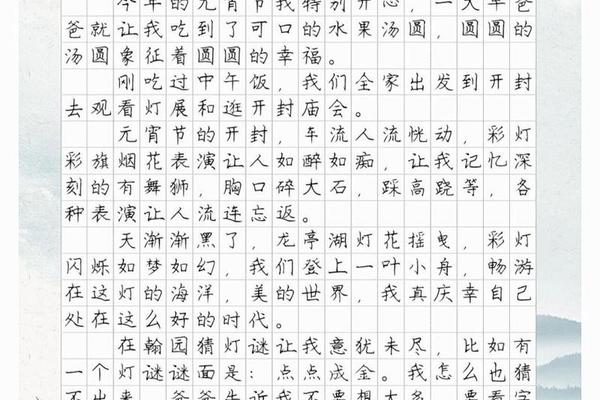 今年的元宵节我特别开心，一大早爸
爸就让我吃到了可口的水果汤圆，圆圆的
汤圆象征着圆圆的幸福。
刚吃过中午饭，我们全家出发到开封
去观看灯展和逛开封庙会。
元宵节的开封，车流人流恍动，彩灯
彩旗烟花表演让人如醉如痴，让我记忆深
刻的有舞狮，胸口碎大石，踩高跷等，各
种表演让人流连忘返。
天渐渐黑了，龙亭湖灯花摇曳，彩灯
闪烁如梦如幻，我们登上一叶小舟，畅游
在这灯的海洋，美的世界，我真庆幸自己
处在这么好的时代。
在翰园猜灯谜让我意犹未尽，比如有
一个灯谜谜面是：点点成金。我怎么也猜
不出来，爸爸告诉我不要想太多，要看字